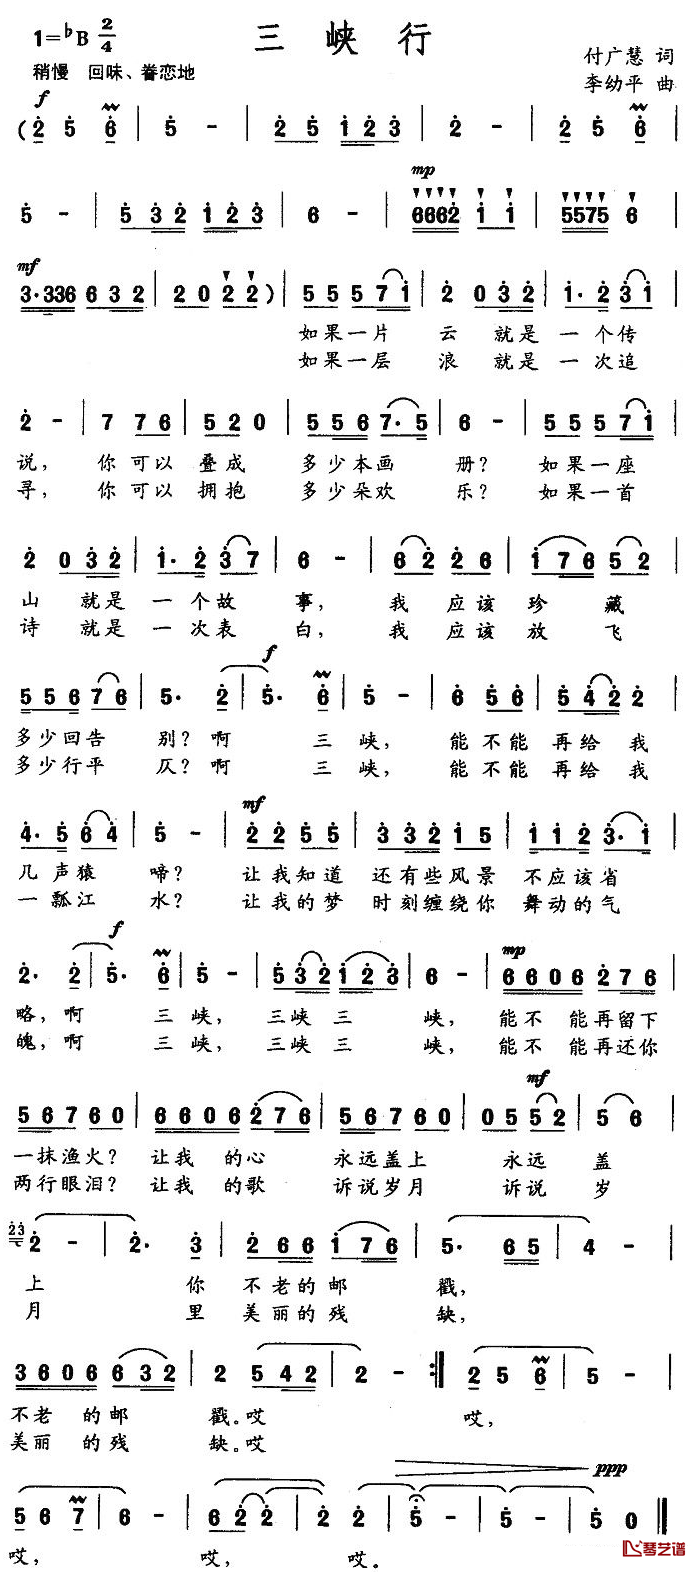 三峡行
1=♭B 2/4
付广慧 词
稍慢 回味、眷恋地
李幼平 曲
f
( 2 5 6 | 5 - | 2 5 1 2 3 | 2 - | 2 5 6 |
mp
5 - | 5 3 2 1 2 3 | 6 - | 6662 1 1 | 5575 6 |
mf
3·336 6 3 2 | 2 0 2 2 ) | 5 5 5 7 1 | 2 0 3 2 | 1· 2 3 1 |
如果一片 云 就是 一个传
如果一层 浪 就是 一次追
2 - | 7 7 6 | 5 2 0 | 5 5 6 7· 5 | 6 - | 5 5 5 7 1 |
说, 你可以 叠成 多少本画 册? 如果一座
寻, 你可以 拥抱 多少朵欢 乐? 如果一首
2 0 3 2 | 1· 2 3 7 | 6 - | 6 2 2 6 | 1 7 6 5 2 |
山 就是 一个故 事, 我 应该珍 藏
诗 就是 一次表 白, 我 应该放 飞
f
5 5 6 7 6 | 5· 2 | 5· 6 | 5 - | 6 5 6 | 5 4 2 2 |
多少回告 别? 啊 三 峡, 能不能 再给 我
多少行平 仄? 啊 三 峡, 能不能 再给 我
mf
4· 5 6 4 | 5 - | 2 2 5 5 | 3 3 2 1 5 | 1 1 2 3· 1 |
几声猿 啼? 让我知道 还有些风景 不应该省
一瓢江 水? 让我的梦 时刻缠绕你 舞动的气
f mp
2· 2 | 5· 6 | 5 - | 5 3 2 1 2 3 | 6 - | 6 6 0 6 2 7 6 |
略, 啊 三 峡, 三峡 三 峡, 能不 能再留下
魄, 啊 三 峡, 三峡 三 峡, 能不 能再还你
mf
5 6 7 6 0 | 6 6 0 6 2 7 6 | 5 6 7 6 0 | 0 5 5 2 | 5 6 |
一抹渔火? 让我 的心 永远盖上 永远 盖
两行眼泪? 让我 的歌 诉说岁月 诉说 岁
23 2 - | 2· 3 | 2 6 6 1 7 6 | 5· 6 5 | 4 - |
上 你 不老的邮 戳,
月 里 美丽的残 缺,
3 6 0 6 6 3 2 | 2 5 4 2 | 2 - :| 2 5 6 | 5 - |
不老 的邮 戳。哎 哎,
美丽 的残 缺。哎
ppp
5 6 7 | 6 - | 6 2 2 | 2 2 | 5 - | 5 - | 5 0 ‖
哎, 哎, 哎。
琴艺谱